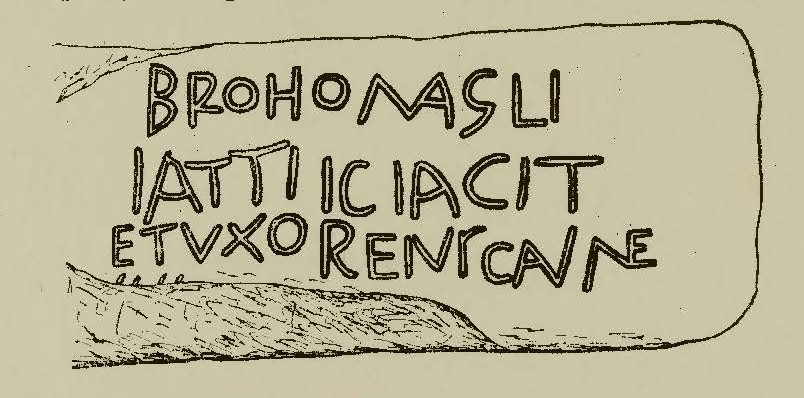 BROHOMAGLI
IATTI IC IACIT
ETVXOREIVSCAVNE